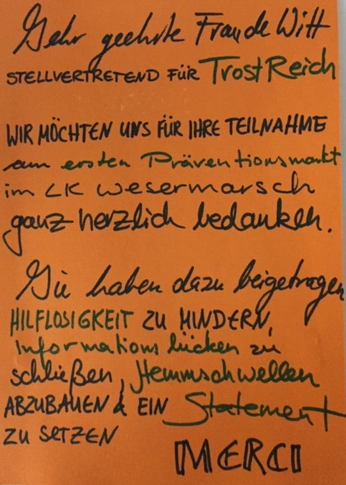 Sehr geehrte Frau de Witt
STELLVERTRETEND FÜR TrostReich
WIR MÖCHTEN UNS FÜR IHRE TEILNAHME
am ersten Präventionsmarkt
im LK Wesermarsch
ganz herzlich bedanken.
Sie haben dazu beigetragen
HILFLOSIGKEIT ZU MINDERN,
Informationslücken zu
schließen, Hemmschwellen
ABZUBAUEN & EIN Statement
ZU SETZEN
MERCI